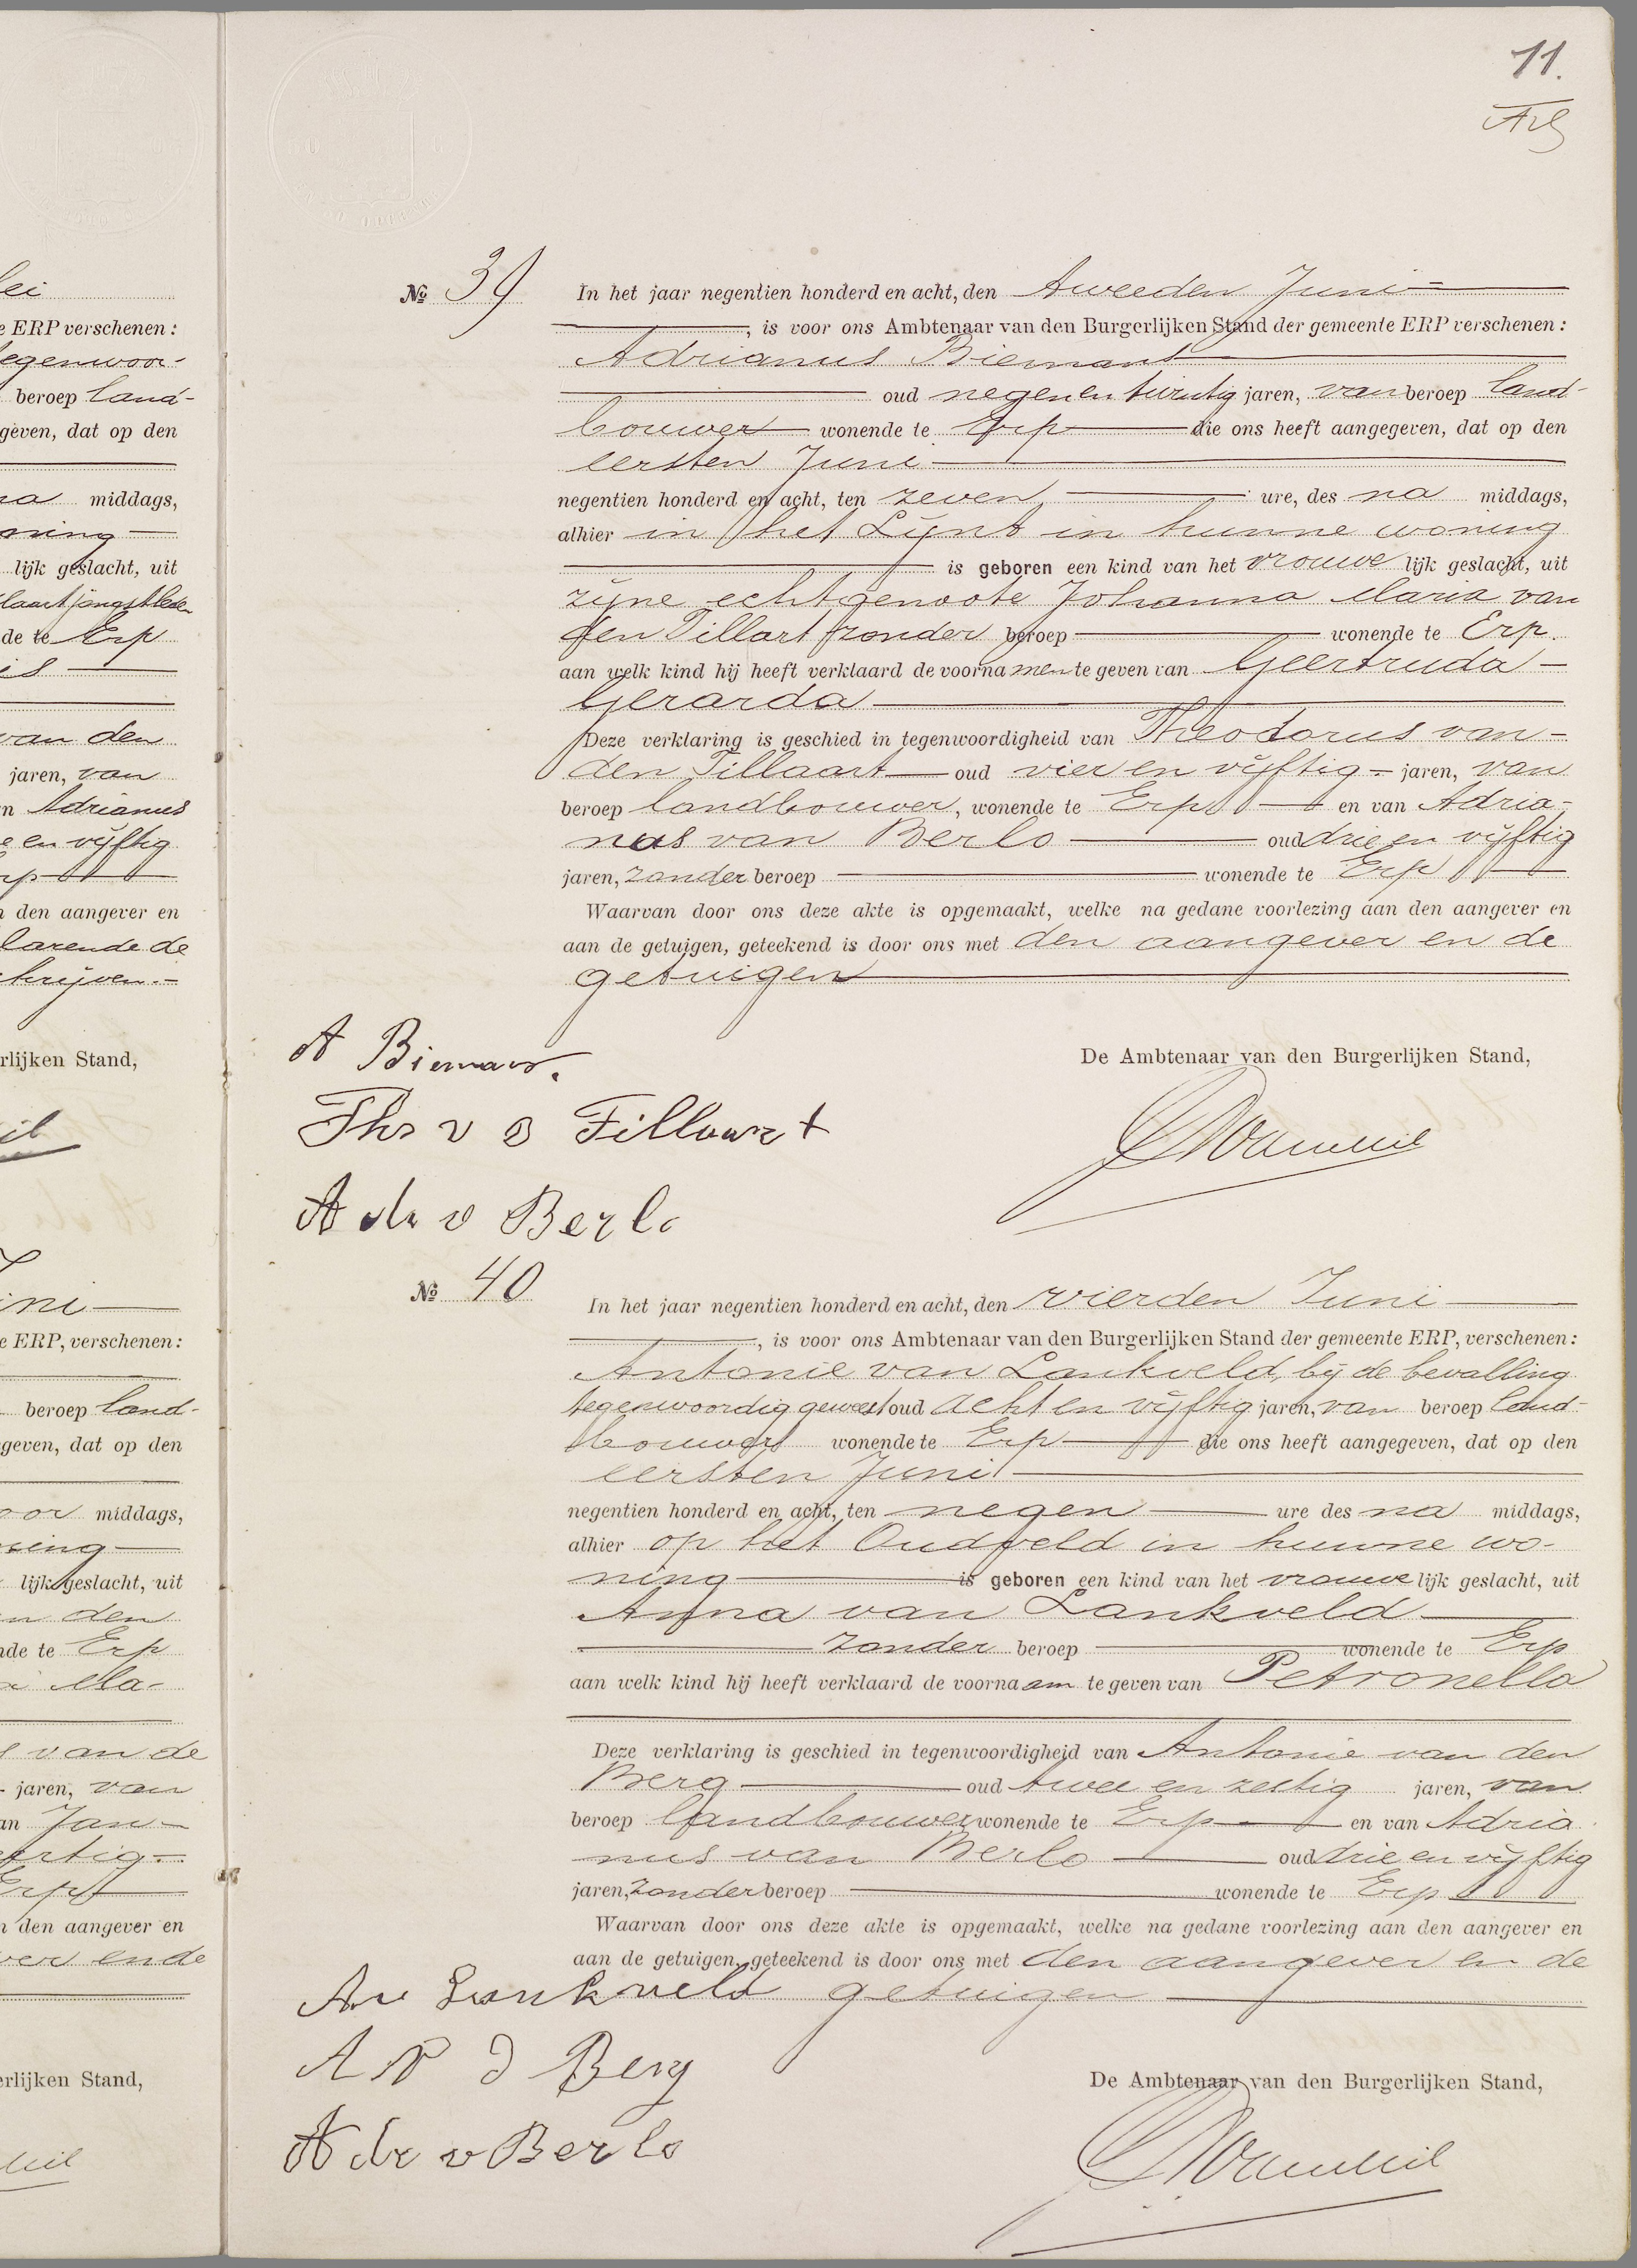 lei
e ERP verschenen:
tegenwoor-
beroep land-
geven, dat op den
na middags,
oning
lijk geslacht, uit
laart jongstleden
de te Erp
is
van den
jaren, van
n Adrianus
e en vijftig
rp
n den aangever en
larende de
hrijven.-
rlijken Stand,
il
ini
e ERP, verschenen:
beroep land-
geven, dat op den
oor middags,
ning
lijk geslacht, uit
n den
nde te Erp
a Ma-
van de
jaren, van
an Jan
ertig
Erp
n den aangever en
ver en de
erlijken Stand,
11.
No 39 In het jaar negentien honderd en acht, den tweeden Juni
, is voor ons Ambtenaar van den Burgerlijken Stand der gemeente ERP verschenen:
Adrianus Biemans
oud negen en twintig jaren, van beroep land-
bouwer wonende te Erp die ons heeft aangegeven, dat op den
eersten Juni
negentien honderd en acht, ten zeven ure, des na middags,
alhier in het Lijnt in hunne woning
is geboren een kind van het vrouwe lijk geslacht, uit
zijne echtgenoote Johanna Maria van
den Tillart zonder beroep wonende te Erp.
aan welk kind hij heeft verklaard de voorna men te geven van Geertruda
Gerarda
Deze verklaring is geschied in tegenwoordigheid van Theodorus van
den Tillaart oud vier en vijftig jaren, van
beroep landbouwer, wonende te Erp en van Adria-
nus van Berlo oud drie en vijftig
jaren, zonder beroep wonende te Erp
Waarvan door ons deze akte is opgemaakt, welke na gedane voorlezing aan den aangever en
aan de getuigen, geteekend is door ons met den aangever en de
getuigen
A Biemans.
De Ambtenaar van den Burgerlijken Stand,
Ths v d Tillaart
Adr v Berlo
No 40 In het jaar negentien honderd en acht, den vierden Juni
, is voor ons Ambtenaar van den Burgerlijken Stand der gemeente ERP, verschenen:
Antonie van Lankveld, bij de bevalling
tegenwoordig geweest oud acht en vijftig jaren, van beroep land-
bouwer wonende te Erp die ons heeft aangegeven, dat op den
eersten Juni
negentien honderd en acht, ten negen ure des na middags,
alhier op het Oudveld in hunne wo-
ning is geboren een kind van het vrouwe lijk geslacht, uit
Anna van Lankveld
zonder beroep wonende te Erp
aan welk kind hij heeft verklaard de voorna am te geven van Petronella
Deze verklaring is geschied in tegenwoordigheid van Antonie van den
Berg oud twee en zestig jaren, van
beroep landbouwer wonende te Erp en van Adria
nus van Berlo oud drie en vijftig
jaren, zonder beroep wonende te Erp
Waarvan door ons deze akte is opgemaakt, welke na gedane voorlezing aan den aangever en
aan de getuigen, geteekend is door ons met den aangever en de
getuigen
A v Lankveld
A v d Berg
De Ambtenaar van den Burgerlijken Stand,
Adr v Berlo